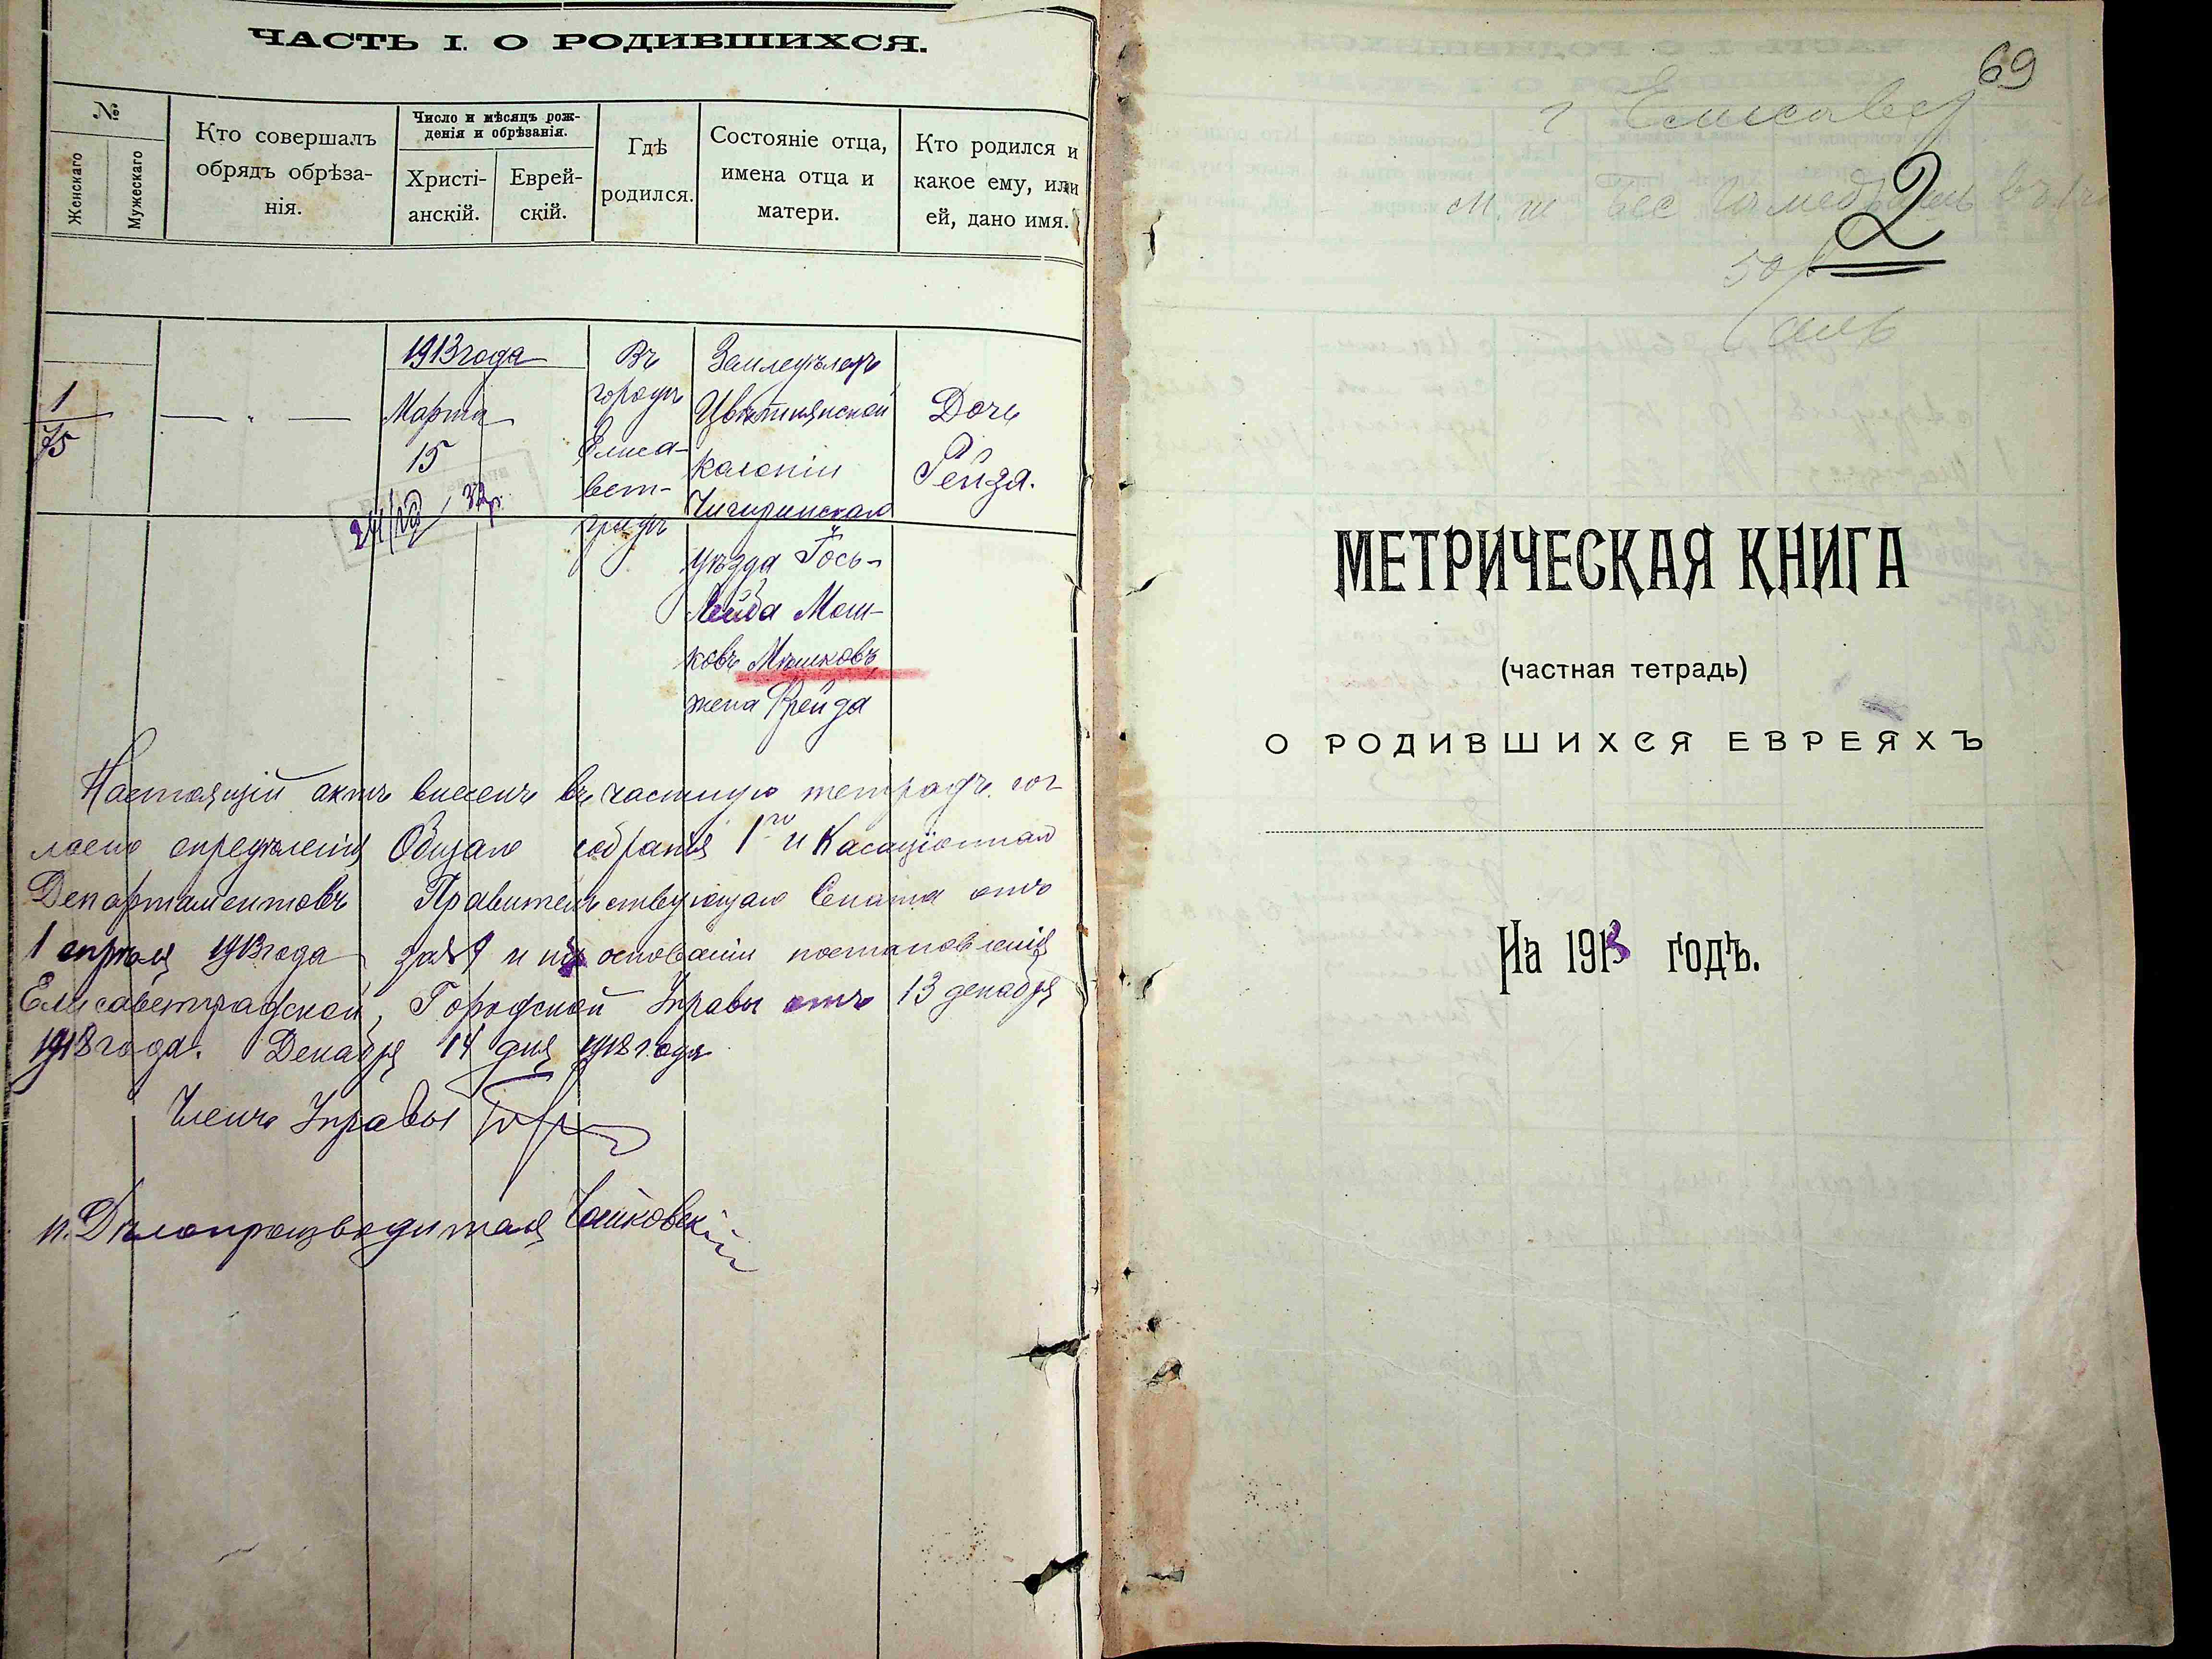 ЧАСТЬ I. О РОДИВШИХСЯ.
№
Женскаго
Мужескаго
Кто совершалъ
обрядъ обрѣза-
нія.
Число и мѣсяцъ рож-
денія и обрѣзанія.
Христі-
анскій.
Еврей-
скій.
Гдѣ
родился.
Состояніе отца,
имена отца и
матери.
Кто родился и
какое ему, или
ей, дано имя.
1
75
1913 года
Марта
15
Въ
городѣ
Елиса-
вет-
градѣ
Земледѣлецъ
Цвѣтнянской
колоніи
Чигиринскаго
уѣзда Іось-
Лейба Мош-
ковъ Мошковъ
жена Фрейда
Дочь
Рейза.
Настоящій актъ внесенъ въ частную тетрадь сог-
ласно опредѣленія Общаго собранія 1го и Касаціоннаго
Департаментовъ Правительствующаго Сената отъ
1 апрѣля 1913 года и на основаніи постановленія
Елисаветградской Городской Управы отъ 13 декабря
1918 года. Декабря 14 дня 1918 года
Членъ Управы
и. Дѣлопроизводителя
69
г Елисавет
2
50
МЕТРИЧЕСКАЯ КНИГА
(частная тетрадь)
О РОДИВШИХСЯ ЕВРЕЯХЪ
На 1913 годъ.